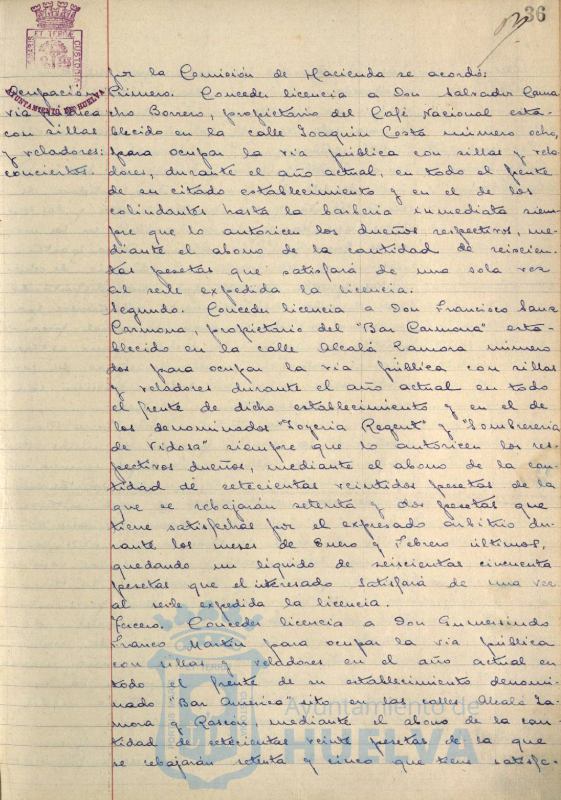 36
AYUNTAMIENTO DE HUELVA
Ocupación
vía pública
con sillas
y veladores:
conciertos.
por la Comisión de Hacienda se acordó:
Primero. Conceder licencia a Don Salvador Cama
cho Borrero, propietario del Café Nacional esta-
blecido en la calle Joaquín Costa número ocho,
para ocupar la vía pública con sillas y vela
dores, durante el año actual, en todo el frente
de su citado establecimiento y en el de los
colindantes hasta la barbería inmediata siem-
pre que lo autoricen los dueños respectivos, me-
diante el abono de la cantidad de seiscien-
tas pesetas que satisfará de una sola vez
al serle expedida la licencia.
Segundo. Conceder licencia a Don Francisco Sanz
Carmona, propietario del "Bar Carmona" esta-
blecido en la calle Alcalá Zamora número
dos para ocupar la vía pública con sillas
y veladores durante el año actual en todo
el frente de dicho establecimiento y en el de
los denominados "Joyería Regent" y "Sombrerería
de Vidosa" siempre que lo autoricen los res-
pectivos dueños, mediante el abono de la can-
tidad de setecientas veintidos pesetas de la
que se rebajarán setenta y dos pesetas que
tiene satisfechas por el expresado arbitrio du-
rante los meses de Enero y Febrero últimos,
quedando un líquido de seiscientas cincuenta
pesetas que el interesado satisfará de una vez
al serle expedida la licencia.
Tercero. Conceder licencia a Don Gumersindo
Franco Martín para ocupar la vía pública
con sillas y veladores en el año actual en
todo el frente de su establecimiento denomi-
nado "Bar América" sito en las calles Alcalá Za-
mora y Rascón, mediante el abono de la can-
tidad de setecientas veinte pesetas de la que
se rebajarán setenta y cinco que tiene satisfe-
Ayuntamiento de
HUELVA